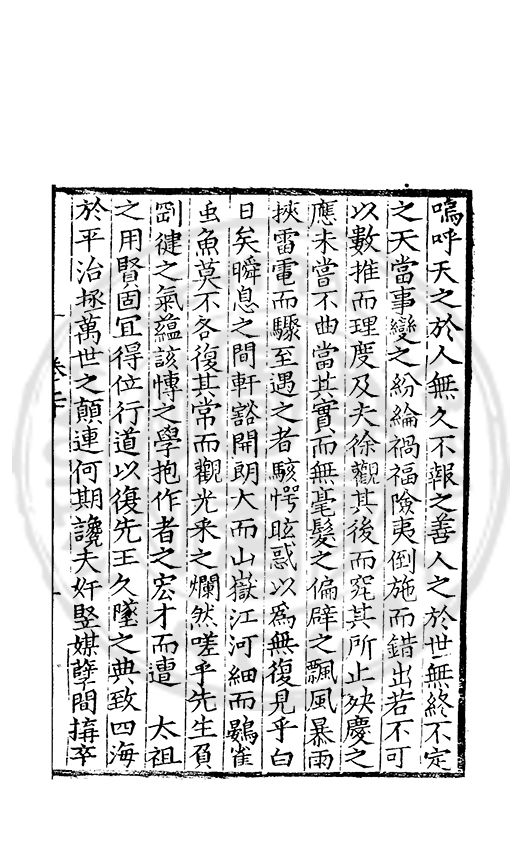 嗚呼天之於人無久不報之善人之於世無終不定
之天當事變之紛綸禍福險夷倒施而錯出若不可
以數推而理度及夫徐觀其後而究其所止殃慶之
應未嘗不曲當其實而無毫髮之偏辟之飄風暴雨
挾雷電而驟至遇之者駭愕眩惑以為無復見乎白
日矣瞬息之間軒豁開朗大而山嶽江河細而鷃雀
虫魚莫不各復其常而觀光采之爛然嗟乎先生負
剛健之氣蘊該博之學抱作者之宏才而遭 太祖
之用賢固宜得位行道以復先王久墜之典致四海
於平治拯萬世之顛連何期讒夫奸竪媒孽間搆卒